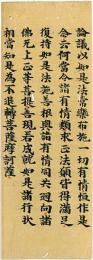 論議以如是法常樂布施一切有情恒作是
念云何當令諸有情類求正法願皆得滿足
復持如是法施善根與諸有情同共迴向諸
佛无上正等菩提善現若成就如是諸行狀
相當知是為不退轉菩薩摩訶薩